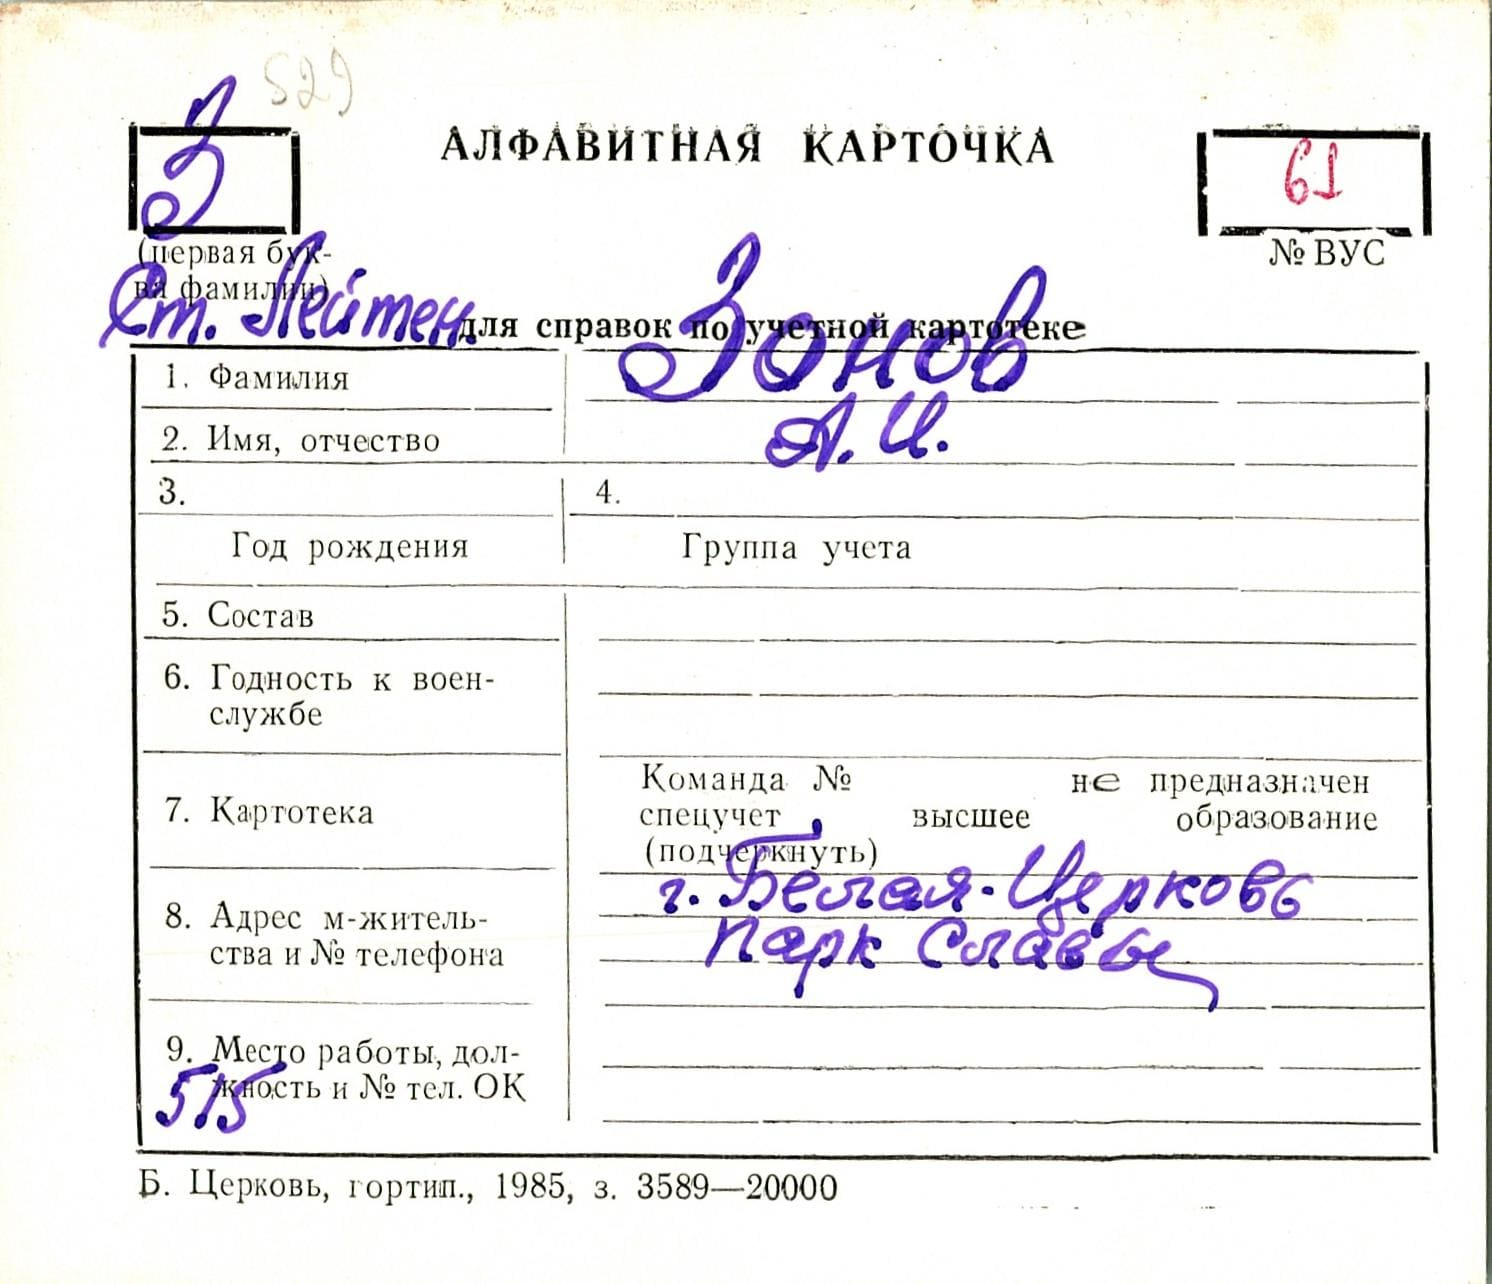 529
З
АЛФАВИТНАЯ КАРТОЧКА
61
(первая бук-
ва фамилии)
№ ВУС
Ст. Лейтен.
для справок по учетной картотеке
1. Фамилия Зонов
2. Имя, отчество А. И.
3. 4.
Год рождения Группа учета
5. Состав
6. Годность к воен-
службе
7. Картотека
Команда № не предназначен
спецучет высшее образование
(подчеркнуть)
8. Адрес м-житель-
ства и № телефона
г. Белая-Церковь
парк Славы
9. Место работы, дол-
жность и № тел. ОК
515
Б. Церковь, гортип., 1985, з. 3589—20000